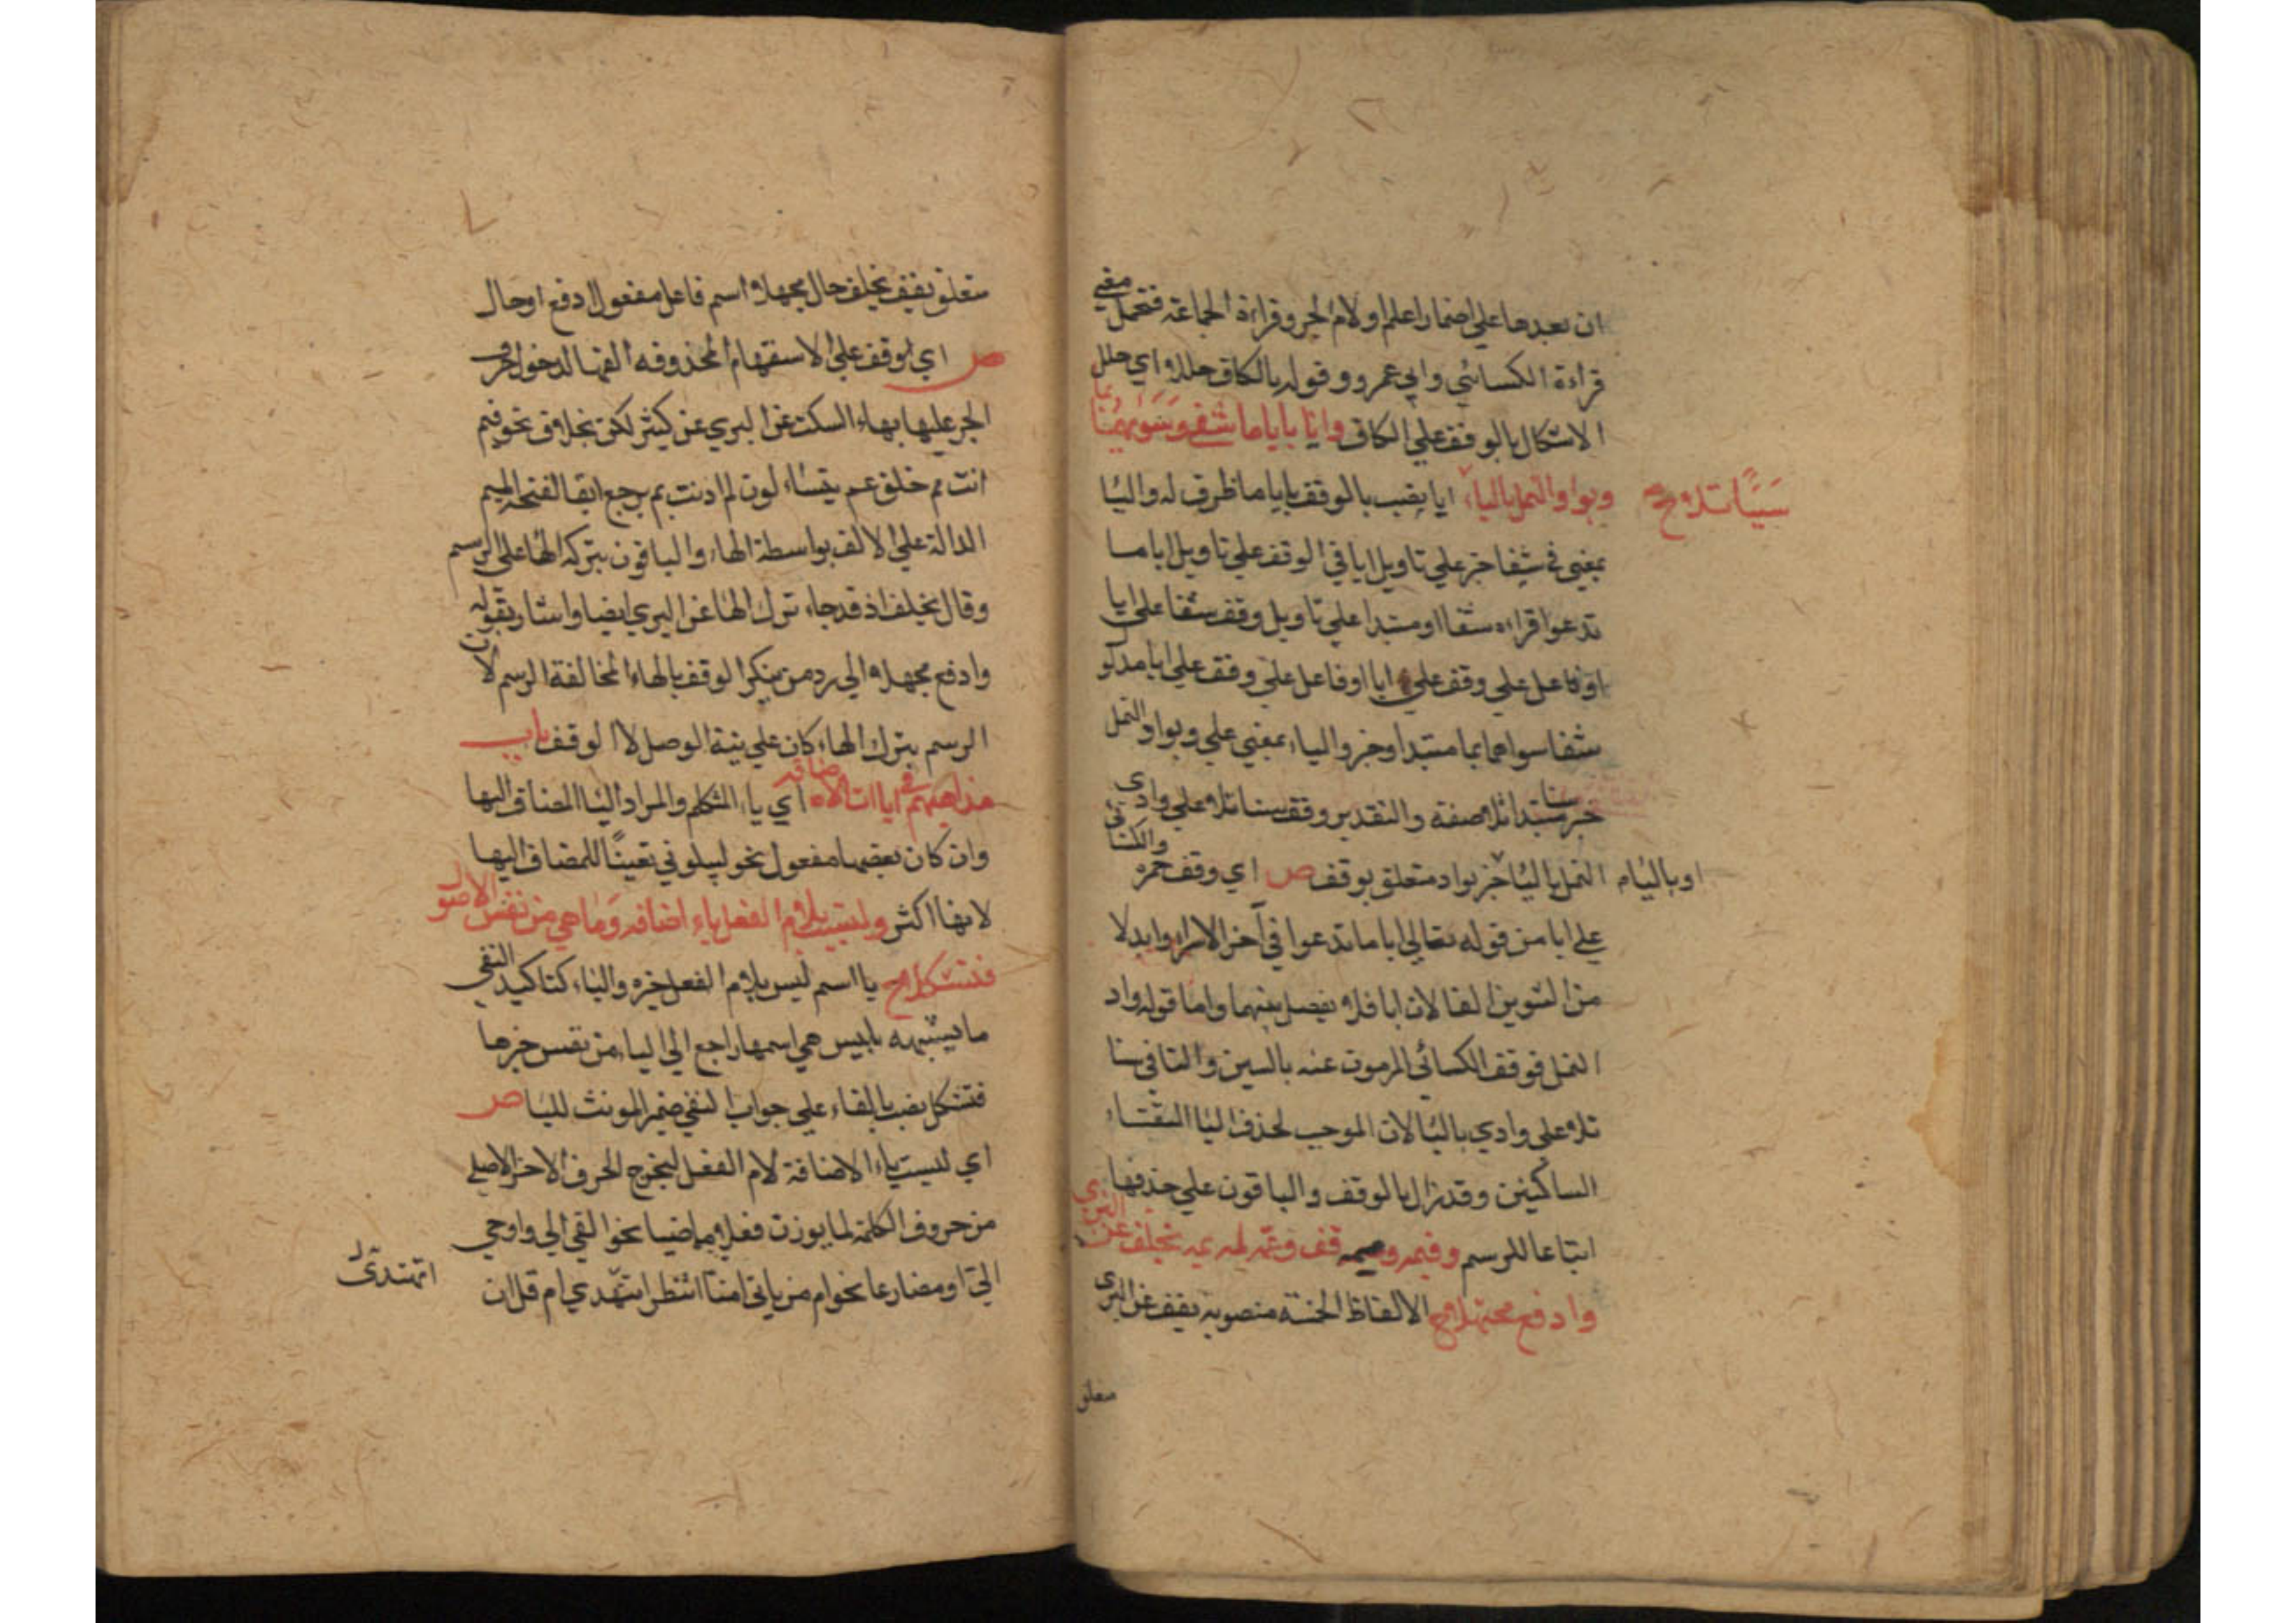 ان بعدها علي اضمار اعلم او لام الجر وقراءة الجماعة فتحمل معني
قراءة الكسائي وابي عمرو وقوله بالكاف حللا اي حلل
الاشكال بالوقف علي الكاف وايا بايا ما شفا وسواهما بما
وبواد النمل بالياء سنا تلا ح ايا بصب بالوقف بايا ما ظرف له والبا
بمعني في شفا خبر علي تاويل ايا في الوقف علي تاويل ايا ما
تدعوا قراءه شفا او مبتدا علي تاويل وقف شفا علي ايا
او فاعل علي وقف علي ايا او فاعل علي وقف علي ايا مدلو
شفا سواهما بما مبتدا وخبر والباء بمعني علي وبواد النمل
خبر سنا مبتدا تلا صفة والتقدير وقف سنا تلا علي وادي
النمل باليا خبر بواد متعلق بوقف ص اي وقف حمزه والكسائي
او باليا م
علي ايا من قوله تعالي ايا ما تدعوا في آخر الاسراء وابدلا
من التنوين الفا لان ايا فلا يفصل بينهما واما قوله واد
النمل فوقف الكسائي المرموز عنه بالسين والتا في سنا
تلا علي وادي باليا لان الموجب لحذف اليا التقاء
الساكنين وقد زال بالوقف والباقون علي حذفها
اتباعا للرسم وفيمه وممه قف وعمه لمه بمه بخلف عن البزي
وادفع مجهلا ح الالفاظ الخمسة منصوبة بقف عن البزي
متعلق
متعلق بقف بخلف حال مجهلا اسم فاعل مفعول ادفع او حال
ص اي وقف علي الاستفهام المحذوفه الفها لدخول حرف
الجر عليها بهاء السكت عن البزي عن كثير لكن بخلاف نحو فيم
انت مم خلق عم يتساءلون لم اذنت بم يرجع ابقا لفتحه الميم
الدالة علي الالف بواسطة الهاء والباقون بتركه الها علي الرسم
وقال بخلف اذ قد جاء ترك الها عن البزي ايضا واشار بقوله
وادفع مجهلا الي رد من ينكر الوقف بالهاء لمخالفة الرسم لان
الرسم بترك الهاء كان علي نية الوصل لا الوقف باب
مذاهبهم في ياات الاضافه اي ياء المتكلم والمراد اليا المضاف اليها
وان كان بعضها مفعول نحو ليبلوني تعينا للمضاف اليها
لانها اكثر وليست بلام الفعل ياء اضافه وما هي من نفس الاصول
فتشكلا ح يا اسم ليس بلام الفعل خبره والباء كتاكيد النفي
ما يشبهه بليس هي اسمها راجع الي الياء من نفس خبرها
فتشكل نصب بالفاء علي جواب النفي ضمير المونث لليا ص
اي ليست ياء الاضافة لام الفعل ليخرج الحرف الاخر الاصلي
من حروف الكلمة لما يوزن فعلا ماضيا نحو القي الي واوحي
الي او مضارعا نحو ام من ياتي امنا انتظر اتهتدي ام قل ان
اتهتدي